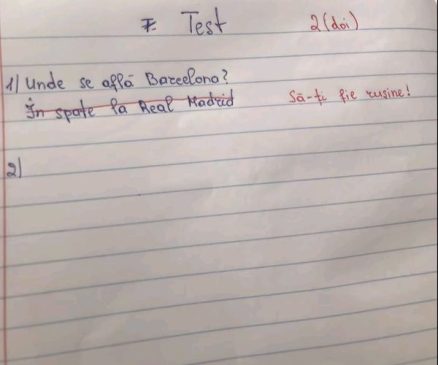 Test 2 (doi)
1) Unde se află Barcelona?
În spate la Real Madrid Să-ți fie rușine!
2)